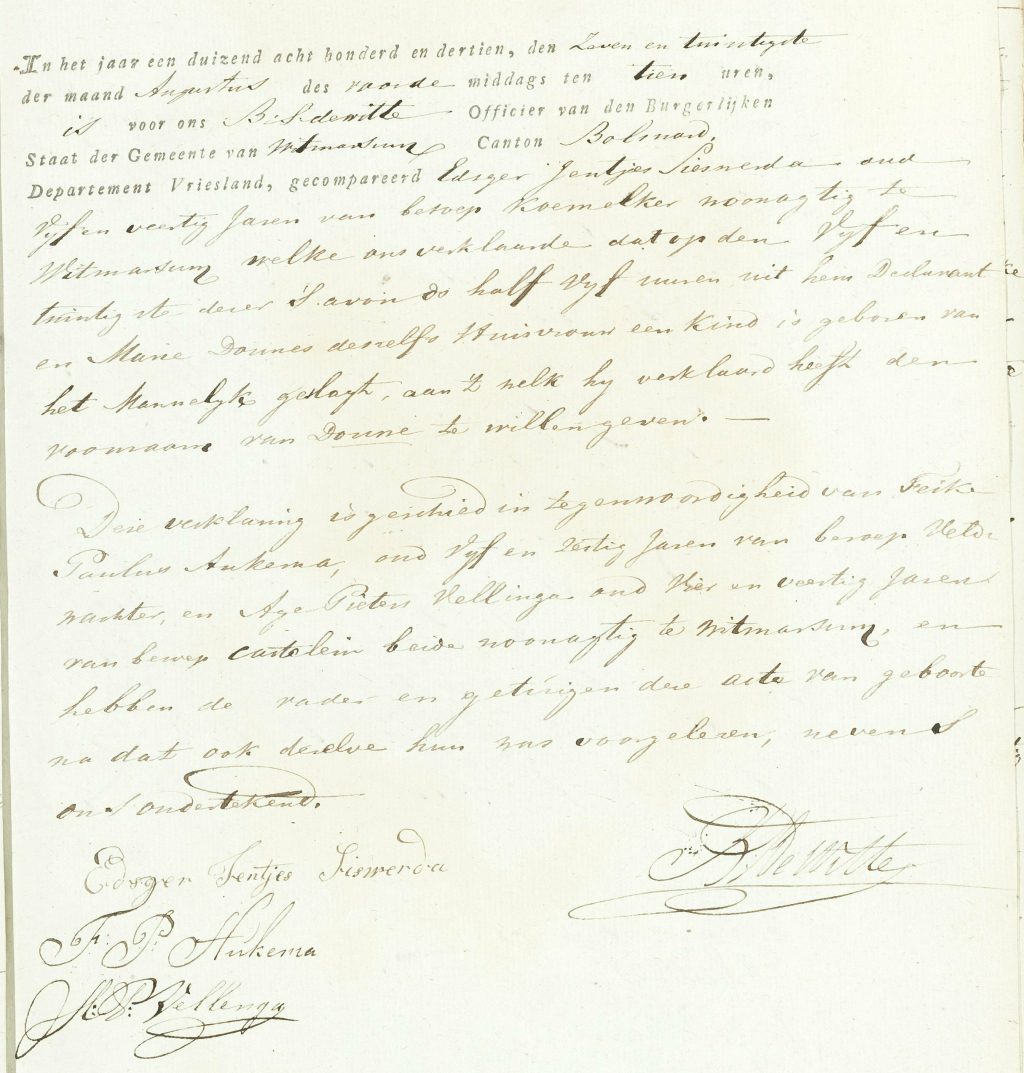 In het jaar een duizend acht honderd en dertien, den Zeven en twintigste
der maand Augustus des voorde middags ten tien uren,
is voor ons B: S. dewitte Officier van den Burgerlijken
Staat der Gemeente van Witmarsum Canton Bolsward,
Departement Vriesland, gecompareerd Edsger Jentjes Sieswerda oud
Vyf en veertig Jaren van beroep Koemelker woonagtig te
Witmarsum welke ons verklaarde dat op den Vyf en
twintigste dezer 'S avonds half Vyf uuren uit hem Declarant
en Maric Dounes deszelfs Huisvrouw een Kind is geboren van
het Mannelyk geslagt, aan 't welk hy verklaard heeft den
voornaam van Doune te willen geven. —
Deze verklaring is geschied in tegenwoordigheid van Feike
Paulus Aukema, oud Vyf en Zestig Jaren van beroep Veld
wachter, en Age Pieters Vellinga oud Vier en veertig Jaren
van beroep Castelein beide woonagtig te Witmarsum, en
hebben de vader en getuigen deze acte van geboorte
na dat ook dezelve hun was voorgelezen, nevens
ons ondertekend.
Edsger Jentjes Siswerda
B: S: De Witte
F: P: Aukema
A: P: Vellenga